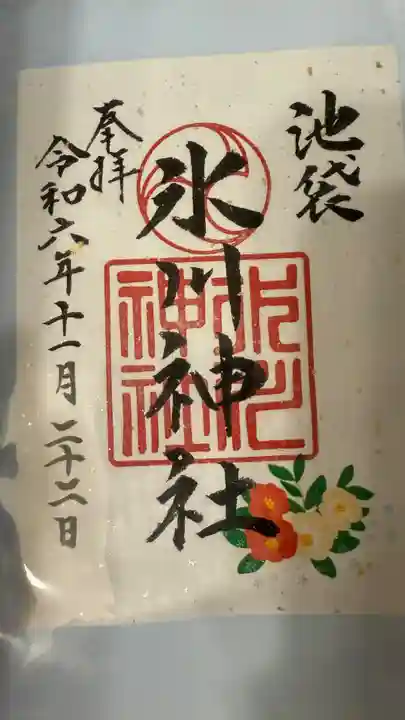 池袋
氷川神社
奉拝
令和六年十一月二十二日